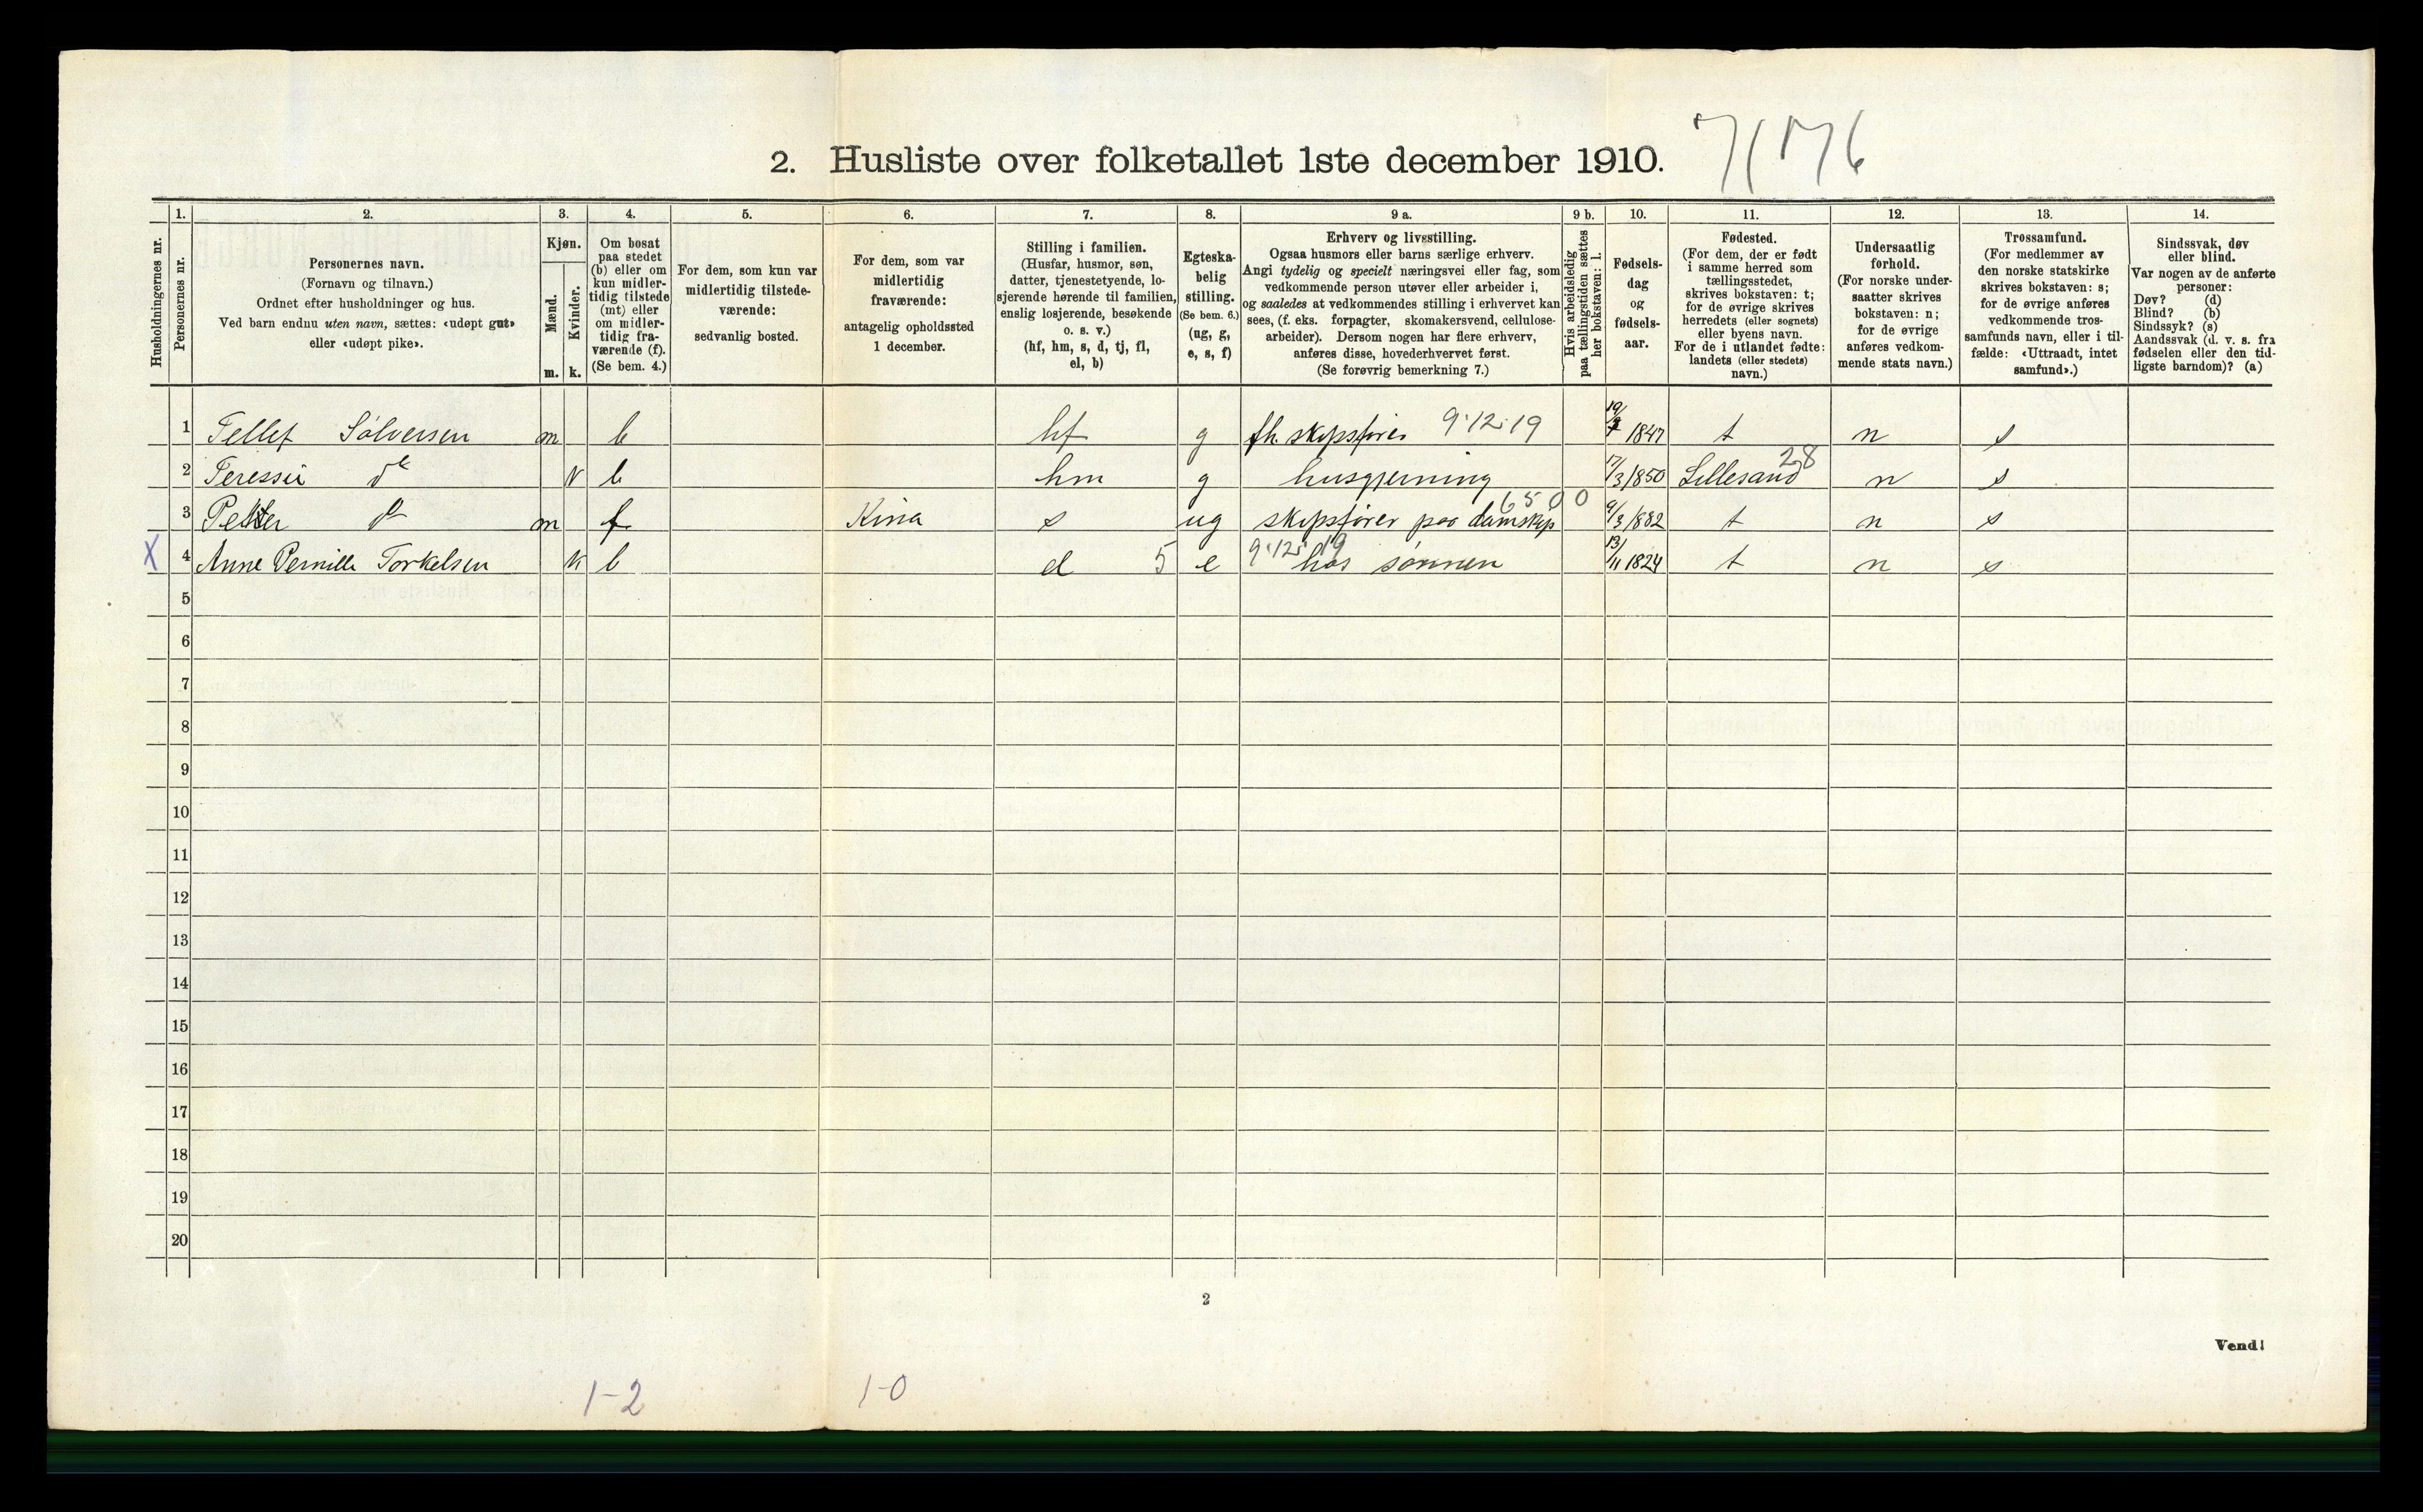 2. Husliste over folketallet 1ste december 1910.
Husholdningernes nr.
1.
Personernes nr.
2.
Personernes navn.
(Fornavn og tilnavn.)
Ordnet efter husholdninger og hus.
Ved barn endnu uten navn, sættes: «udøpt gut»
eller «udøpt pike».
3.
Kjøn.
Mænd.
Kvinder.
m. k.
4.
Om bosat
paa stedet
(b) eller om
kun midler-
tidig tilstede
(mt) eller
om midler-
tidig fra-
værende (f).
(Se bem. 4.)
5.
For dem, som kun var
midlertidig tilstede-
værende:
sedvanlig bosted.
6.
For dem, som var
midlertidig
fraværende:
antagelig opholdssted
1 december.
7.
Stilling i familien.
(Husfar, husmor, søn,
datter, tjenestetyende, lo-
sjerende hørende til familien,
enslig losjerende, besøkende
o. s. v.)
(hf, hm, s, d, tj, fl,
el, b)
8.
Egteska-
belig
stilling.
(Se bem. 6.)
(ug, g,
e, s, f)
9 a.
Erhverv og livsstilling.
Ogsaa husmors eller barns særlige erhverv.
Angi tydelig og specielt næringsvei eller fag, som
vedkommende person utøver eller arbeider i,
og saaledes at vedkommendes stilling i erhvervet kan
sees, (f. eks. forpagter, skomakersvend, cellulose-
arbeider). Dersom nogen har flere erhverv,
anføres disse, hovederhvervet først.
(Se forøvrig bemerkning 7.)
9 b.
Hvis arbeidsledig
paa tællingstiden sættes
her bokstaven: l.
10.
Fødsels-
dag
og
fødsels-
aar.
11.
Fødested.
(For dem, der er født
i samme herred som
tællingsstedet,
skrives bokstaven: t;
for de øvrige skrives
herredets (eller sognets)
eller byens navn.
For de i utlandet fødte:
landets (eller stedets)
navn.)
12.
Undersaatlig
forhold.
(For norske under-
saatter skrives
bokstaven: n;
for de øvrige
anføres vedkom-
mende stats navn.)
13.
Trossamfund.
(For medlemmer av
den norske statskirke
skrives bokstaven: s;
for de øvrige anføres
vedkommende tros-
samfunds navn, eller i til-
fælde: «Uttraadt, intet
samfund».)
14.
Sindssvak, døv
eller blind.
Var nogen av de anførte
personer:
Døv? (d)
Blind? (b)
Sindssyk? (s)
Aandssvak (d. v. s. fra
fødselen eller den tid-
ligste barndom)? (a)
1 Tellef Sølversen m b hf g fh. skipsfører 9.12.19 1847 t n s
2 Teressie do k b hm g husgjerning 17/3 1850 Lillesand 28 n s
3 Petter do m f Kina s ug skipsfører paa damskip 6500 9/3 1882 t n s
X 4 Anne Pernille Torkelsen k b d 5 e 9.12.19 hos sønnen 13/11 1824 t n s
5
6
7
8
9
10
11
12
13
14
15
16
17
18
19
20
2
Vend!
1-2 1-0